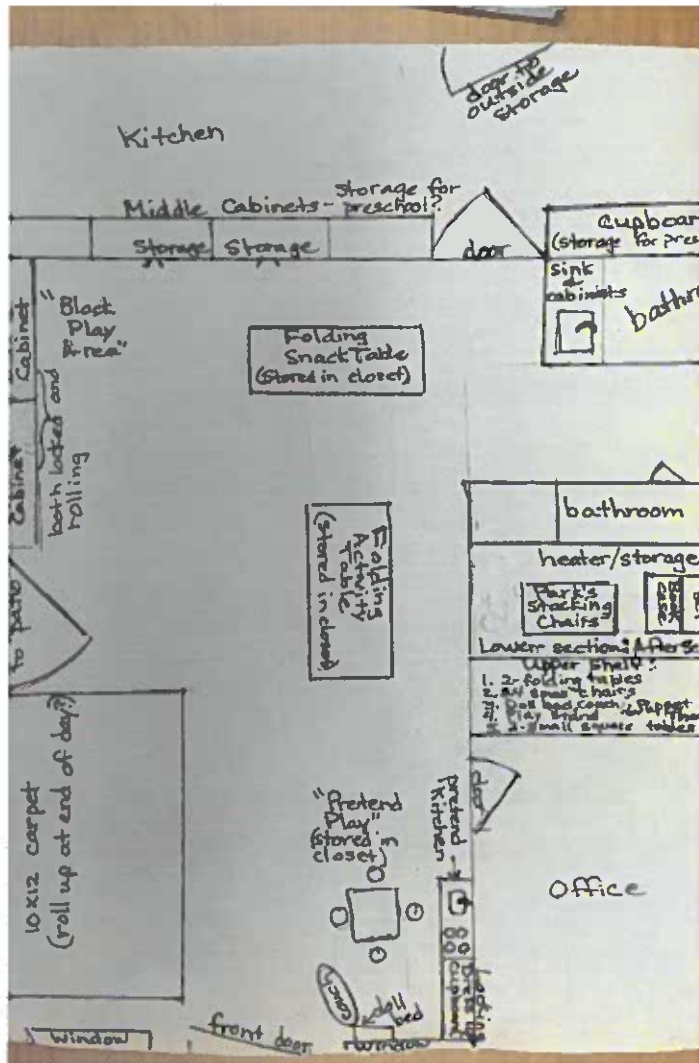 door to
outside
storage
Kitchen
Middle Cabinets - storage for
preschool?
Storage
Storage
door
Cupboar
(storage for pres
Sink
&
cabinists
bathro
"Block
Play
Area"
Cabinet
Cabinet
both locked and
rolling
Folding
Snack Table
(Stored in closet)
Folding
Activity
Table
(stored in closet)
bathroom
heater/storage
Park's
Stacking
Chairs
Book
Case
Lower section: After Sc
Upper Shelf:
1. 2-folding tables
2. 24 small chairs
3. Doll bed, couch,
4. Play stand
Puppet
5. 2-small square tables
to patio
10x12 carpet
(roll up at end of day?)
"Pretend
Play"
(stored in
closet)
pretend
Kitchen
door
Office
couch
doll
bed
cupboard
window
front door
window